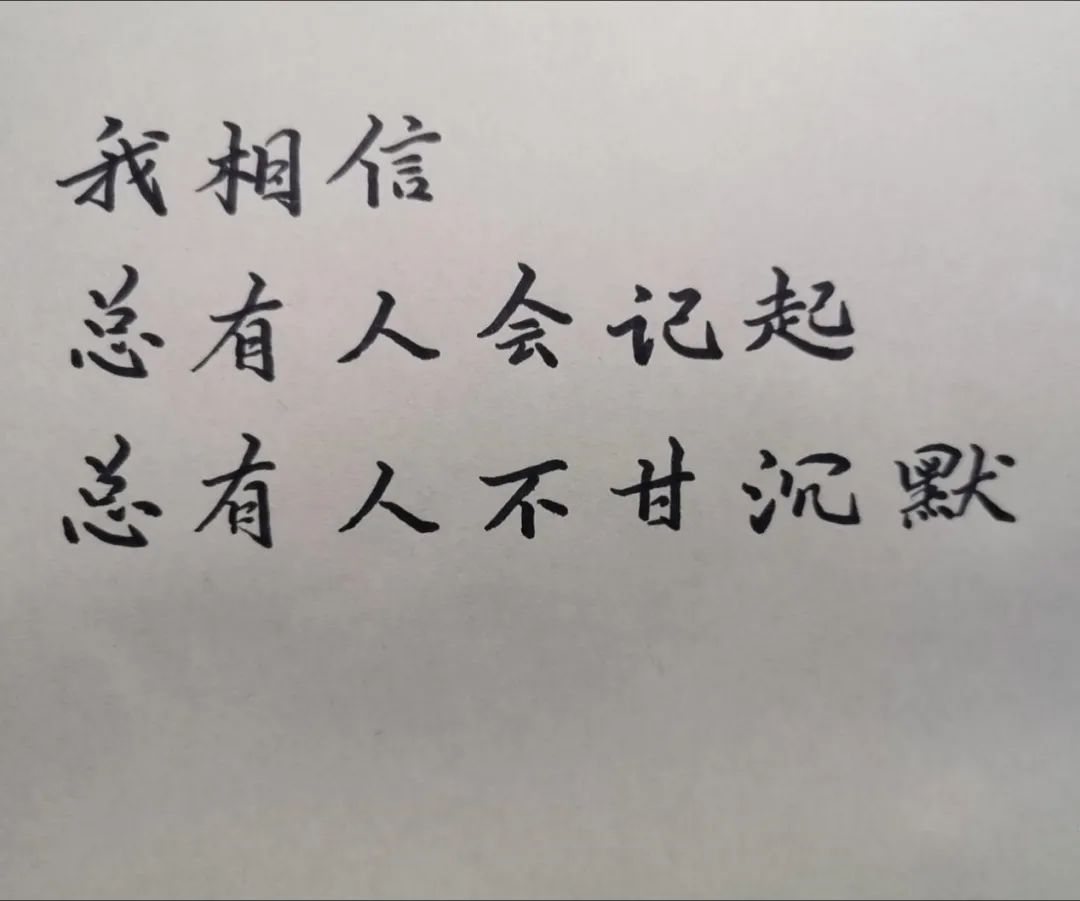 我相信
总有人会记起
总有人不甘沉默